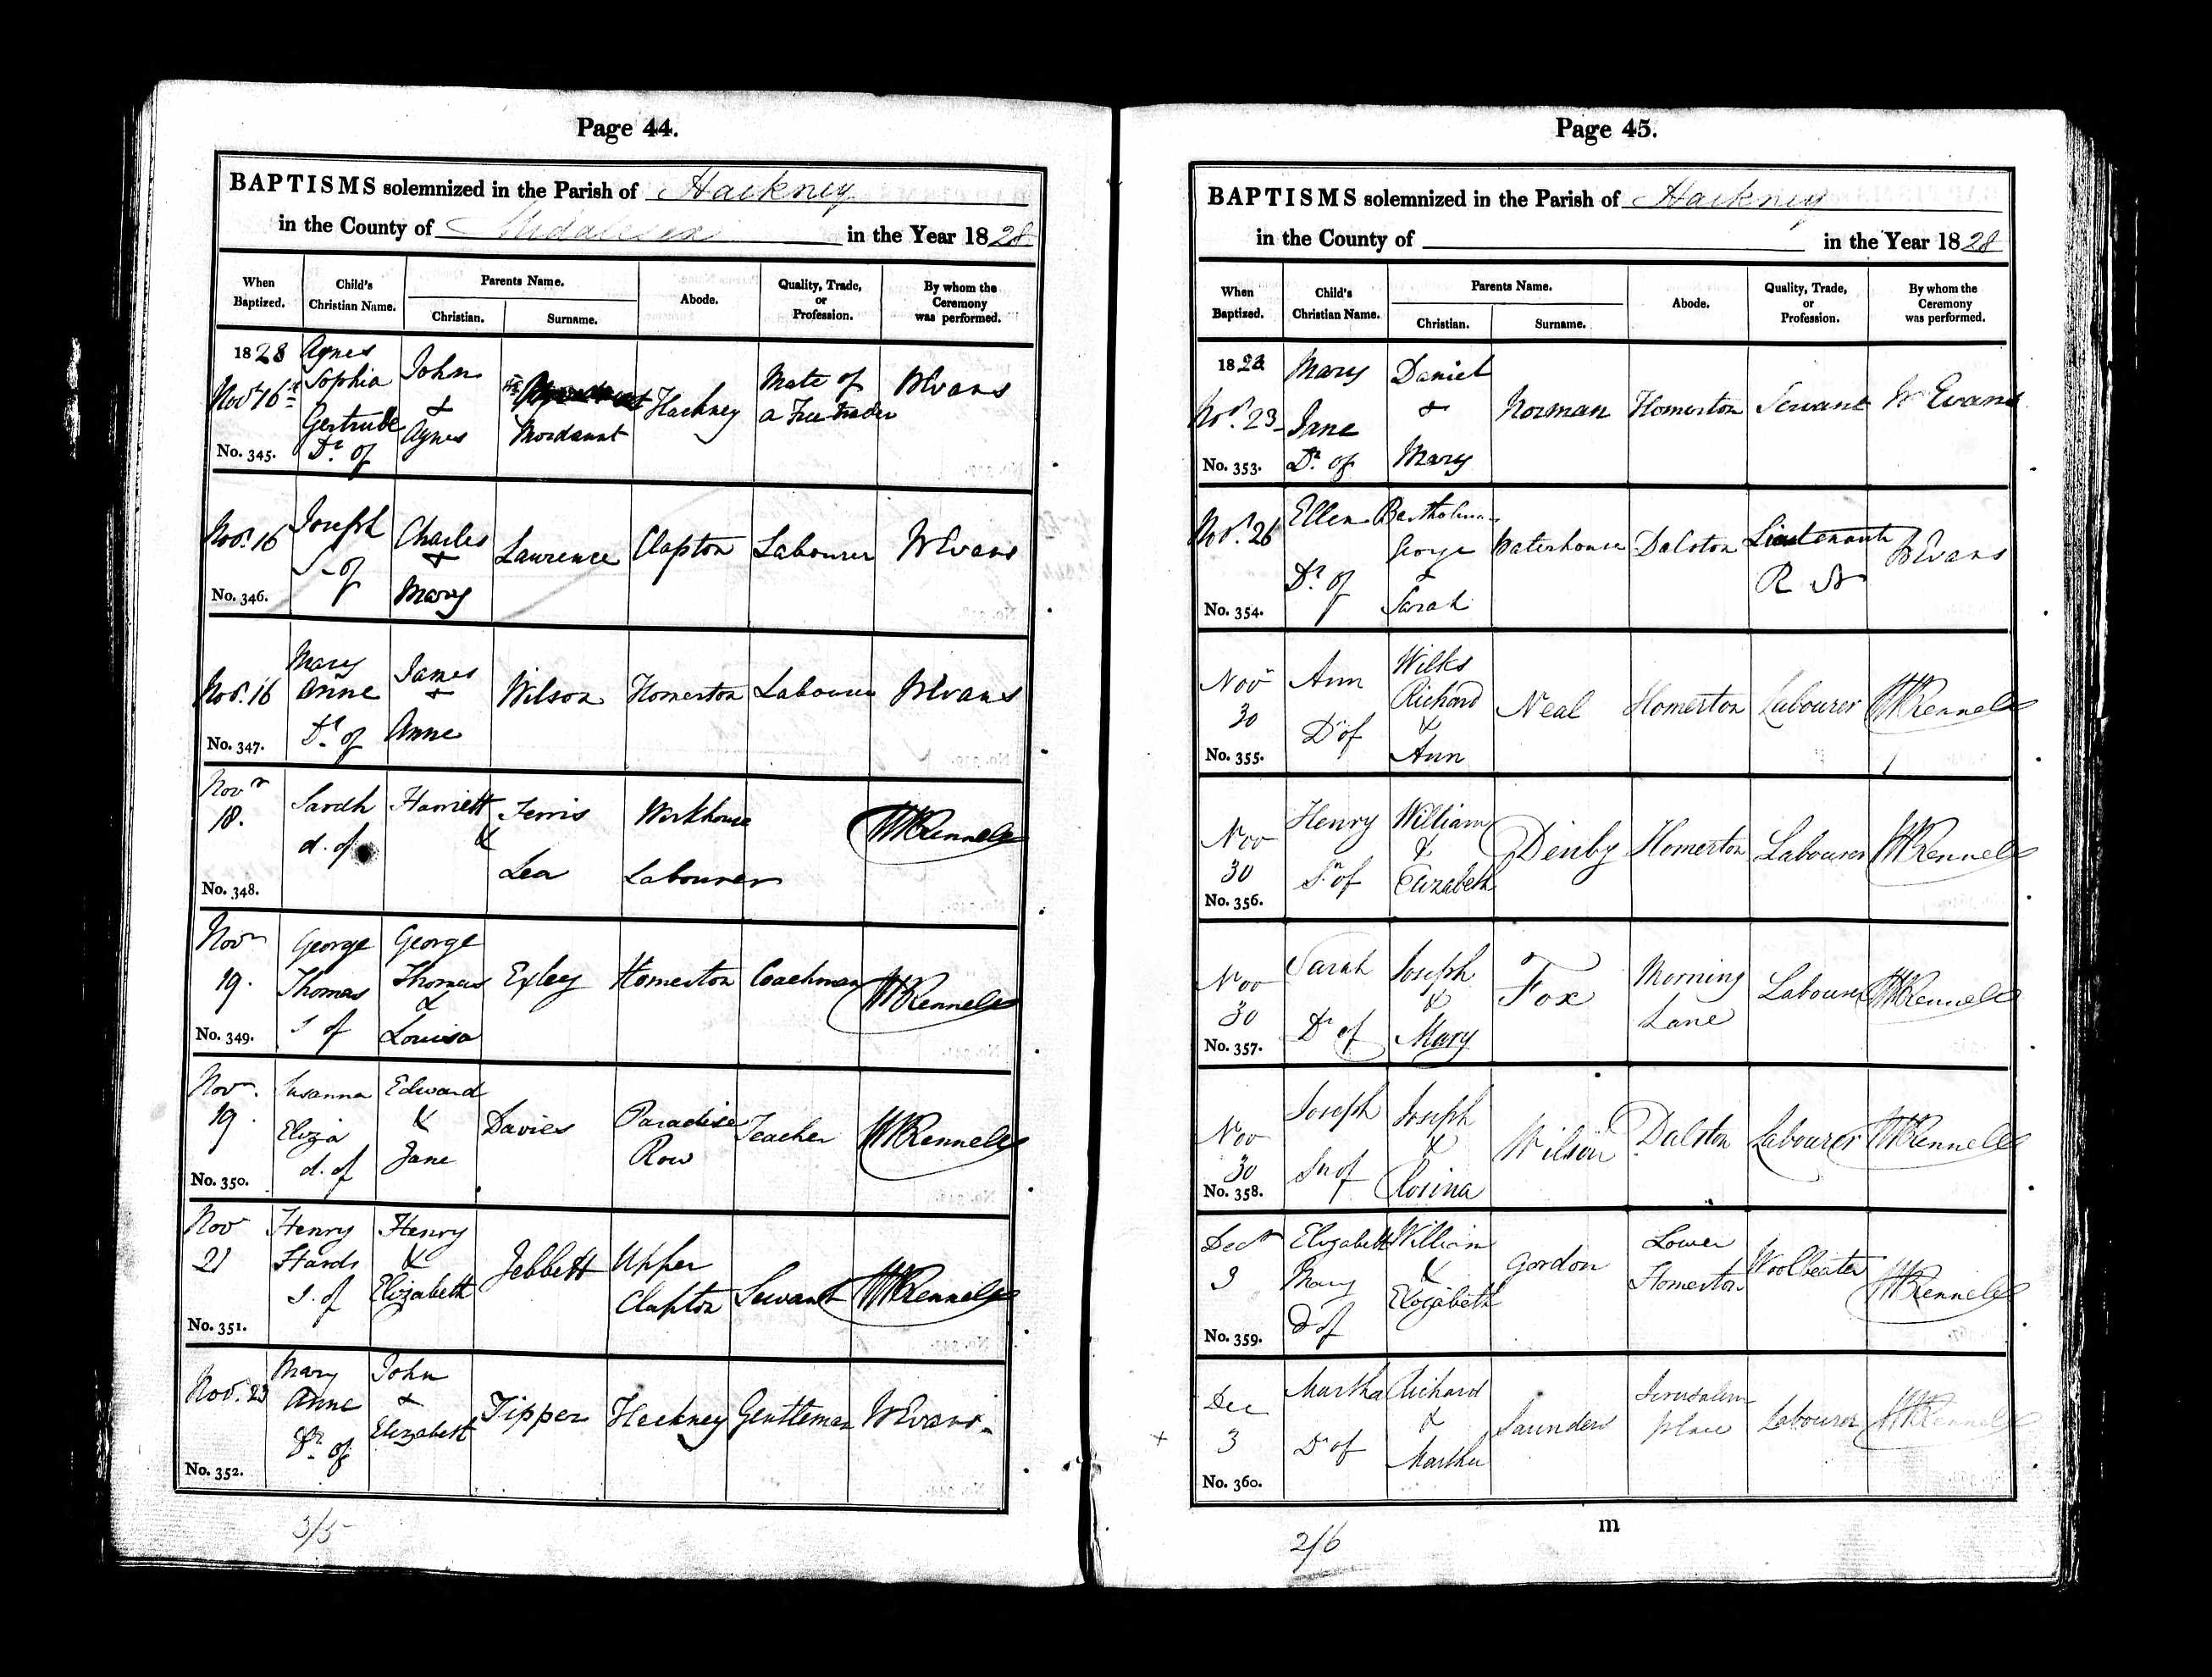 Page 44.
BAPTISMS solemnized in the Parish of Hackney
in the County of Middlesex in the Year 1828
When Baptized.
Child's Christian Name.
Parents Name.
Christian.
Surname.
Abode.
Quality, Trade, or Profession.
By whom the Ceremony was performed.
1828
Novr 16th
No. 345.
Agnes
Sophia
Gertrude
Dr. of
John
&
Agnes
Mordaunt
Hackney
Mate of
a Free Trader
W Evans
Novr. 16
No. 346.
Joseph
S. of
Charles
&
Mary
Lawrence
Clapton
Labourer
W Evans
Novr. 16
No. 347.
Mary
Anne
Dr. of
James
&
Anne
Wilson
Homerton
Labourer
W Evans
Novr
18.
No. 348.
Sarah
d. of
Harriett
&
Ferris
Lea
Workhouse
Labourer
HHRennell
Novr
19.
No. 349.
George
Thomas
s of
George
Thomas
&
Louisa
Exley
Homerton
Coachman
HHRennell
Novr.
19.
No. 350.
Susanna
Eliza
d. of
Edward
&
Jane
Davies
Paradise
Row
Teacher
HHRennell
Nov
21
No. 351.
Henry
s. of
Henry
&
Elizabeth
Jebbett
Upper
Clapton
Servant
HHRennell
Novr. 23
No. 352.
Mary
Anne
Dr. of
John
&
Elizabeth
Tipper
Hackney
Gentleman
W Evans.
3/5
Page 45.
BAPTISMS solemnized in the Parish of Hackney
in the County of in the Year 1828
When Baptized.
Child's Christian Name.
Parents Name.
Christian.
Surname.
Abode.
Quality, Trade, or Profession.
By whom the Ceremony was performed.
1828
Novr. 23
No. 353.
Mary
Jane
Dr. of
Daniel
&
Mary
Norman
Homerton
Servant
W Evans
Novr. 26
No. 354.
Ellen
Dr. of
Bartholomew
George
&
Sarah
Waterhouse
Dalston
Lieutenant
R N
W Evans
Novr
30
No. 355.
Ann
Dr of
Wilks
Richard
&
Ann
Neal
Homerton
Labourer
HHRennell
Nov
30
No. 356.
Henry
Sn of
William
&
Elizabeth
Denby
Homerton
Labourer
HHRennell
Nov
30
No. 357.
Sarah
Dr of
Joseph
&
Mary
Fox
Morning
Lane
Labourer
HHRennell
Nov
30
No. 358.
Joseph
Sn of
Joseph
&
Rosina
Wilson
Dalston
Labourer
HHRennell
Decr
3
No. 359.
Elizabeth
Mary
D of
William
&
Elizabeth
Gordon
Lower
Homerton
Woolbeater
HHRennell
Dec
3
No. 360.
Martha
Dr of
Richard
&
Martha
Saunders
Jerusalem
Place
Labourer
HHRennell
m
2/6